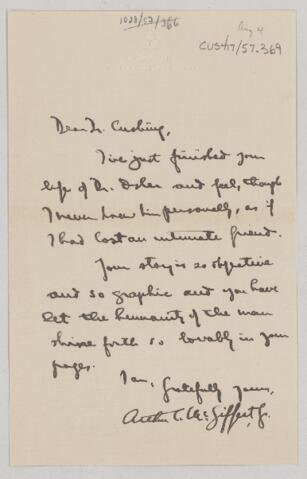 1028/57/366
Aug 4
CUS417/57.369
Dear Dr. Cushing,
I've just finished your
life of Dr. Osler and feel, though
I never knew him personally, as if
I had lost an intimate friend.
Your story is so objective
and so graphic and you have
let the humanity of the man
shine forth so lovably in your
pages.
I am,
Gratefully yours,
Arthur C. McGiffert, Jr.